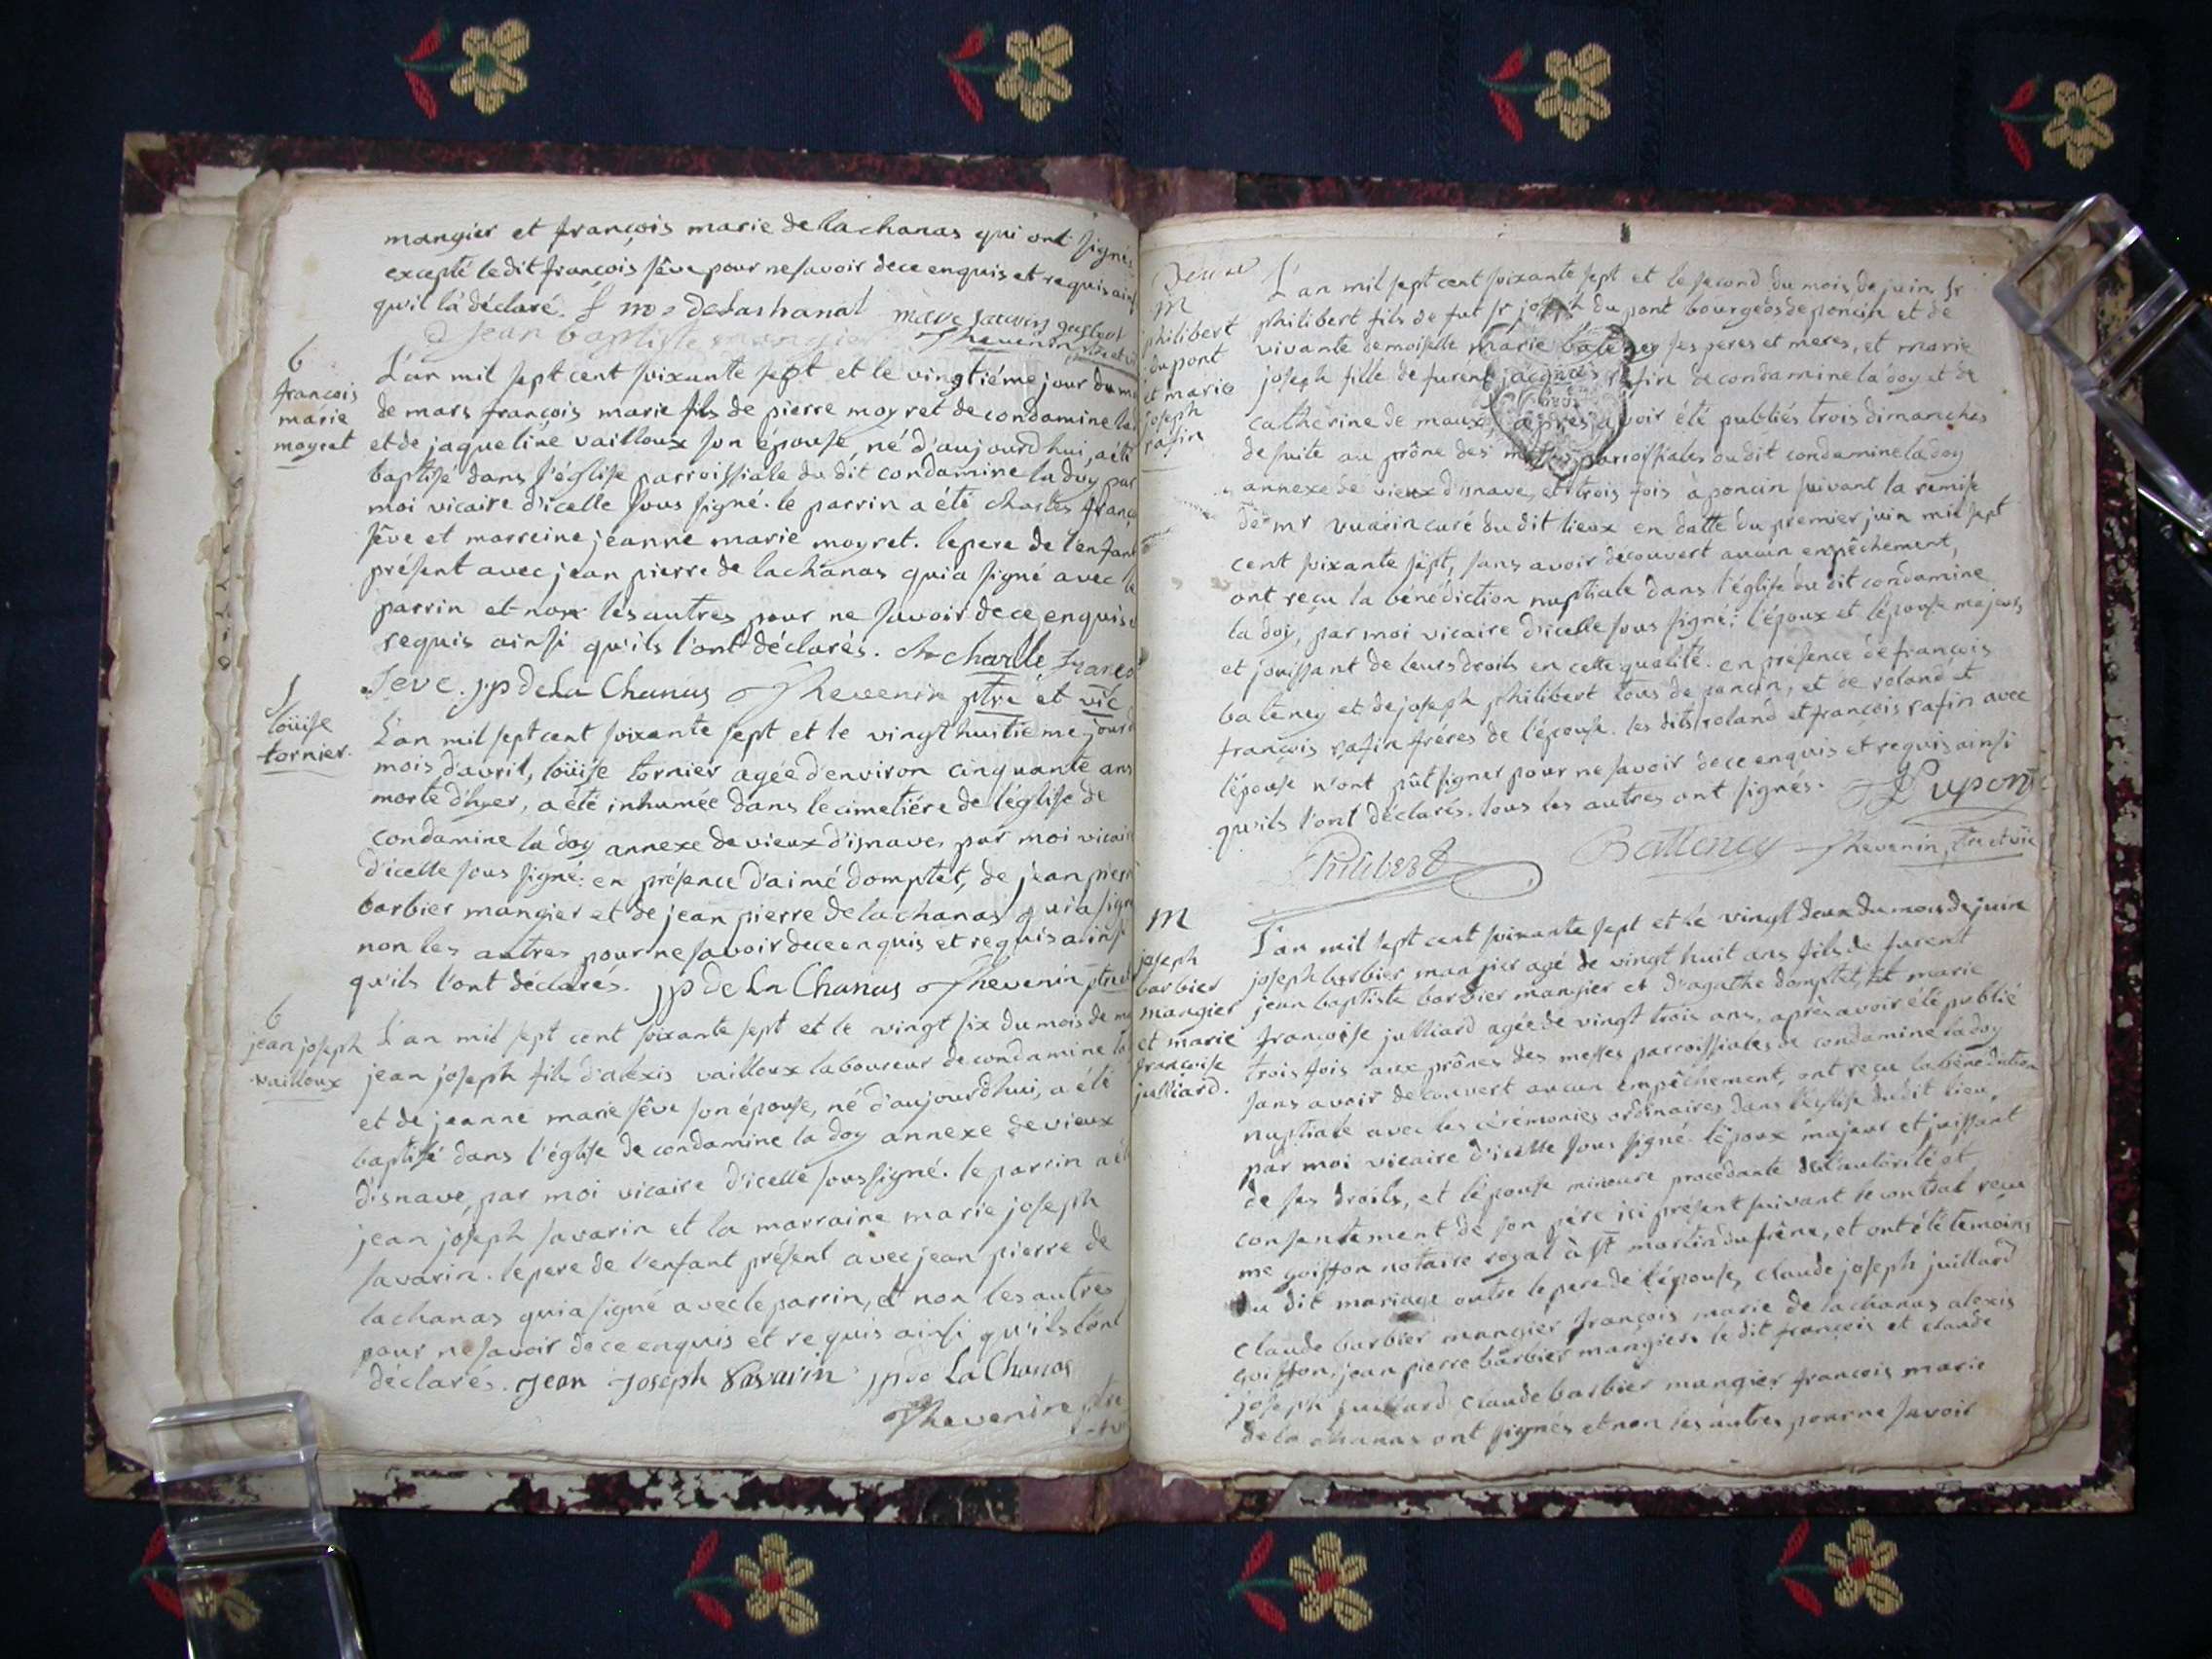 mangier et françois marie de lachanas qui ont signés
excepté ledit françois sêve pour ne savoir de ce enquis et requis ainsi
qu'il la déclaré.
jean baptiste mangier Thevenin
b
françois
marie
moyret
L'an mil sept cent soixante sept et le vingtiéme jour du
de mars françois marie fils de pierre moyret de condamine la
et de jaqueline vailloux son épouse, né d'aujourdhui, a été
baptisé dans l'église parroissiale du dit condamine la doy par
moi vicaire d'icelle sous signé. le parrin a été charles
sêve et marreine jeanne marie moyret. le pere de l'enfant
présent avec jean pierre de lachanas qui a signé avec le
parrin et non les autres pour ne savoir de ce enquis
requis ainsi qu'ils l'ont déclarés. charlle
seve. jp de La Chanas Thevenin ptre et vic
loüise
tornier.
L'an mil sept cent soixante sept et le vingt huitiéme jour
mois d'avril, loüise tornier agée d'environ cinquante ans
morte d'hyer, a été inhumée dans le cimetiére de l'église de
condamine la doy annexe de vieux d'isnave, par moi vicaire
d'icelle sous signé: en présence d'aimé domptet, de jean pierre
barbier mangier et de jean pierre de lachanas qui a signé
non les autres pour ne savoir de ce enquis et requis ainsi
qu'ils l'ont déclarés. jp de La Chanas Thevenin ptre
b
jean joseph
vailloux
L'an mil sept cent soixante sept et le vingt six du mois de
jean joseph fils d'alexis vailloux laboureur de condamine la
et de jeanne marie sêve son épouse, né d'aujourdhui, a été
baptisé dans l'église de condamine la doy annexe de vieux
d'isnave, par moi vicaire d'icelle sous signé. le parrin a été
jean joseph savarin et la marraine marie joseph
savarin. le pere de l'enfant présent avec jean pierre de
lachanas qui a signé avec le parrin, et non les autres
pour ne savoir de ce enquis et requis ainsi qu'ils l'ont
déclarés. jean joseph Savarin jp de La Chanas
Thevenin ptre
M
philibert
dupont
et marie
joseph
rafin
L'an mil sept cent soixante sept et le second du mois de juin sr
philibert fils de fut sr joseph du pont bourgeois de poncin et de
vivante demoiselle marie bateney ses peres et meres, et marie
joseph fille de furent jacques rafin de condamine la doy et de
catherine de maux, après avoir été publiés trois dimanches
de suite au prône des messes parroissiales du dit condamine la doy
annexe de vieux d'isnave, et trois fois à poncin suivant la remise
de mr vuarin curé du dit lieux en datte du premier juin mil sept
cent soixante sept, sans avoir découvert aucun empêchement,
ont reçu la bénédiction nuptiale dans l'église du dit condamine
la doy, par moi vicaire d'icelle sous signé; l'époux et l'épouse majeurs
et jouissant de leurs droits en cette qualité. en présence de françois
bateney et de joseph philibert tous de poncin, et de roland et
françois rafin fréres de l'épouse. les dits roland et françois rafin avec
l'épouse n'ont pût signer pour ne savoir de ce enquis et requis ainsi
qu'ils l'ont déclarés. tous les autres ont signés. Dupont
Philibert Batteney Thevenin, ptre et vic
M
joseph
barbier
mangier
et marie
françoise
julliard.
L'an mil sept cent soixante sept et le vingt deux du mois de juin
joseph barbier mangier agé de vingt huit ans fils de furent
jean baptiste barbier mangier et d'agathe domptet, et marie
françoise julliard agée de vingt trois ans, après avoir été publié
trois fois aux prônes des messes parroissiales de condamine la doy
sans avoir découvert aucun empêchement, ont reçu la bénédiction
nuptiale avec les cérémonies ordinaires dans l'église du dit lieu,
par moi vicaire d'icelle sous signé. l'époux majeur et juissant
de ses droits, et l'épouse mineure procédante de l'autôrité et
consentement de son pére ici présent suivant le contrat reçu
me goiffon notaire royal à st martin du frêne, et ont été témoins
du dit mariage outre le pere de l'épouse, claude joseph juillard
claude barbier mangier françois marie de lachanas alexis
goiffon, jean pierre barbier mangiers le dit françois et claude
joseph juillard claude barbier mangier françois marie
de la chanas ont signés et non les autres pour ne savoir